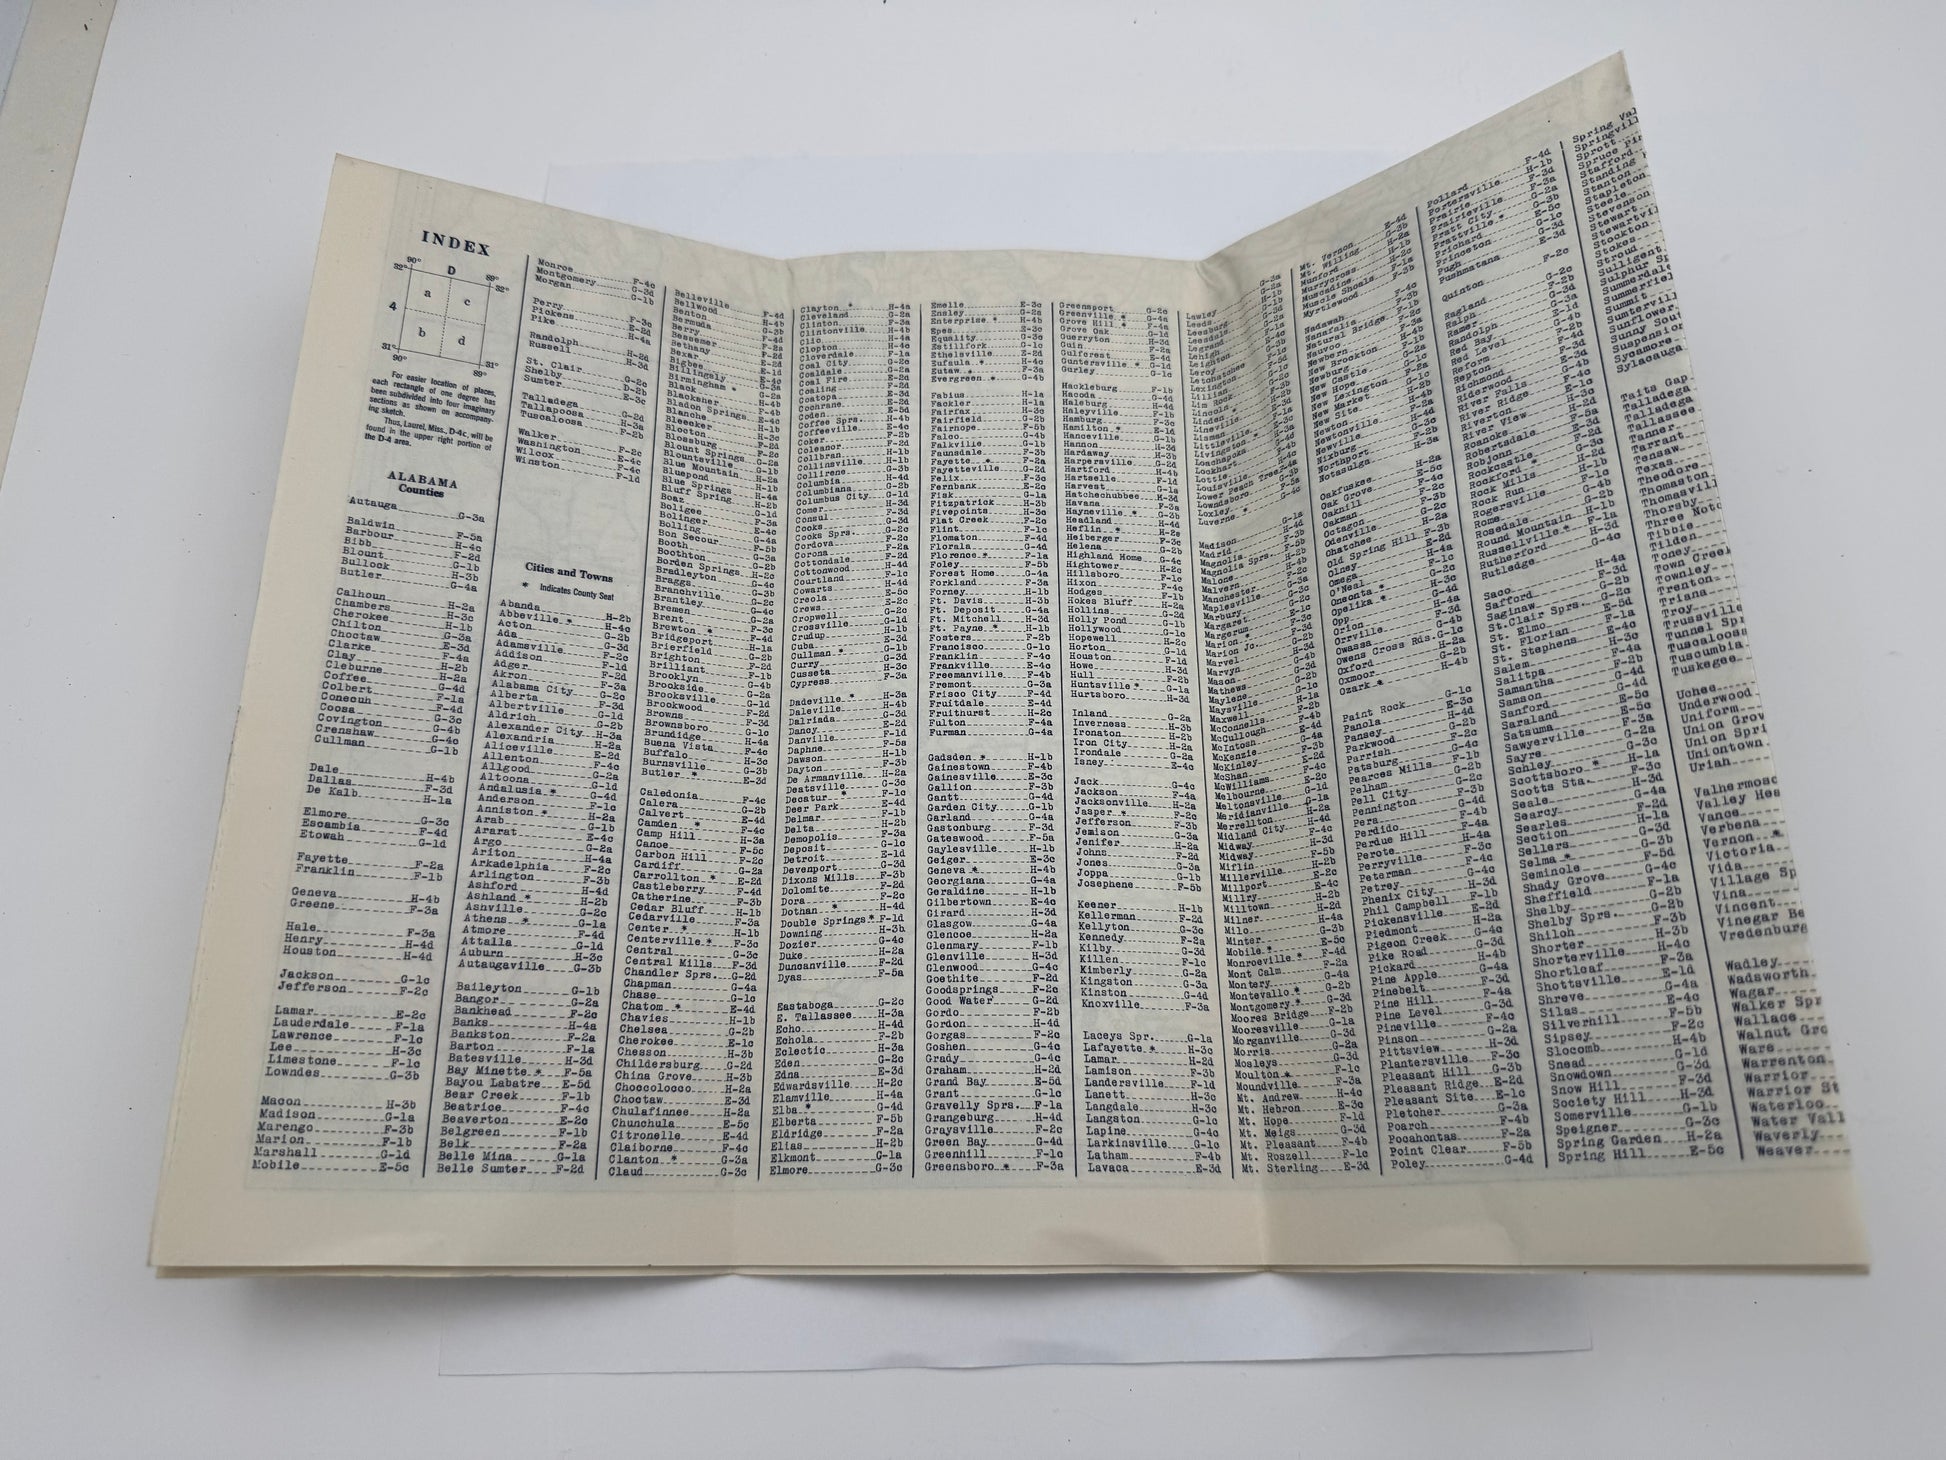 INDEX
90° D 89°
32° 32°
a c
4
b d
31° 31°
90° 89°
For easier location of places,
each rectangle of one degree has
been subdivided into four imaginary
sections as shown on accompany-
ing sketch.
Thus, Laurel, Miss., D-4c, will be
found in the upper right portion of
the D-4 area.
ALABAMA
Counties
Autauga G-3a
Baldwin F-5a
Barbour H-4c
Bibb F-2d
Blount G-1b
Bullock H-3b
Butler G-4a
Calhoun H-2a
Chambers H-3c
Cherokee H-1b
Chilton G-3a
Choctaw E-3d
Clarke F-4a
Clay H-2b
Cleburne H-2a
Coffee G-4d
Colbert F-1a
Conecuh F-4d
Coosa G-3c
Covington G-4b
Crenshaw G-4c
Cullman G-1b
Dale H-4b
Dallas F-3d
De Kalb H-1a
Elmore G-3c
Escambia F-4d
Etowah G-1d
Fayette F-2a
Franklin F-1b
Geneva H-4b
Greene F-3a
Hale F-3a
Henry H-4d
Houston H-4d
Jackson G-1c
Jefferson F-2c
Lamar E-2c
Lauderdale F-1a
Lawrence F-1c
Lee H-3c
Limestone F-1c
Lowndes G-3b
Macon H-3b
Madison G-1a
Marengo F-3b
Marion F-1b
Marshall G-1d
Mobile E-5c
Monroe F-4c
Montgomery G-3d
Morgan G-1b
Perry F-3c
Pickens E-2d
Pike H-4a
Randolph H-2d
Russell H-3d
St. Clair G-2c
Shelby D-2b
Sumter E-3c
Talladega G-2d
Tallapoosa H-3a
Tuscaloosa F-2b
Walker F-2c
Washington E-4c
Wilcox F-4c
Winston F-1d
Cities and Towns
* Indicates County Seat
Abanda H-2b
Abbeville * H-4c
Acton G-2b
Ada G-3d
Adamsville F-2c
Addison F-1d
Adger F-2d
Akron F-3a
Alabama City G-2c
Alberta F-3d
Albertville G-1d
Aldrich G-2b
Alexander City H-3a
Alexandria H-2a
Aliceville E-2d
Allenton F-4c
Allgood G-2a
Altoona G-1d
Andalusia * G-4d
Anderson F-1c
Anniston * H-2a
Arab G-1b
Ararat E-4c
Argo G-2a
Ariton H-4a
Arkadelphia F-2c
Arlington F-3b
Ashford H-4d
Ashland * H-2b
Ashville G-2c
Athens * G-1a
Atmore F-4d
Attalla G-1d
Auburn H-3c
Autaugaville G-3b
Baileyton G-1b
Bangor G-2a
Bankhead F-2c
Banks H-4a
Bankston F-2a
Barton F-1a
Batesville H-3d
Bay Minette * F-5a
Bayou Labatre E-5d
Bear Creek F-1b
Beatrice F-4c
Beaverton E-2c
Belgreen F-1b
Belk F-2a
Belle Mina G-1a
Belle Sumter F-2d
Belleville F-4d
Bellwood H-4b
Benton G-3b
Bermuda F-4d
Berry F-2a
Bessemer F-2d
Bethany E-2d
Bexar E-1d
Bigbee E-4c
Billingsly G-3a
Birmingham *
Black
Blacksher
Bladon Springs
Blanche
Bleeker
Blocton
Blossburg
Blount Springs
Blountsville
Blue Mountain
Bluepond
Blue Springs
Bluff Spring
Boaz
Boligee
Bolinger
Bolling
Bon Secour
Booth
Boothton
Borden Springs
Bradleyton
Braggs
Branchville
Brantley
Bremen
Brent
Brewton *
Bridgeport
Brierfield
Brighton
Brilliant
Brooklyn
Brookside
Brooksville
Brookwood
Browns F-3d
Brownsboro G-1c
Brundidge H-4a
Buena Vista F-4c
Buffalo H-3c
Burnsville G-3b
Butler * E-3d
Caledonia F-4c
Calera G-2b
Calvert E-4d
Camden * F-4c
Camp Hill H-3a
Canoe F-5c
Carbon Hill F-2c
Cardiff G-2a
Carrollton * E-2d
Castleberry F-4d
Catherine F-3b
Cedar Bluff H-1b
Cedarville F-3a
Center * H-1b
Centerville * F-3c
Central G-3c
Central Mills F-3d
Chandler Sprs. G-2d
Chapman G-4a
Chase G-1c
Chatom * E-4d
Chavies H-1b
Chelsea G-2b
Cherokee E-1c
Chesson H-3b
Childersburg G-2d
China Grove H-3b
Choccolocco H-2a
Choctaw E-3d
Chulafinnee H-2a
Chunchula E-5c
Citronelle E-4d
Claiborne F-4c
Clanton * G-3a
Claud G-3c
Clayton * H-4a
Cleveland G-2a
Clinton F-3a
Clintonville H-4b
Clio H-4a
Clopton H-4c
Cloverdale F-1a
Coal City G-2c
Coaldale G-2a
Coal Fire E-2d
Coaling F-2d
Coatopa E-3d
Cochrane E-2d
Coden E-5d
Coffee Sprs. H-4b
Coffeeville E-4c
Coker F-2b
Coleanor F-2d
Collbran H-1b
Collinsville H-1b
Collirene G-3b
Columbia H-4d
Columbiana G-2b
Columbus City G-1d
Comer H-3d
Consul F-3d
Cooks G-3d
Cooks Sprs. G-2c
Cordova F-2c
Corona F-2a
Cottondale F-2d
Cottonwood H-4d
Courtland F-1c
Cowarts H-4d
Creola E-5c
Crews E-2c
Cropwell G-2c
Crossville G-1d
Crudup G-1d
Cuba E-3d
Cullman * G-1b
Curry G-3d
Cusseta H-3c
Cypress F-3a
Dadeville * H-3a
Daleville H-4b
Dalriada G-3d
Dancy E-2d
Danville F-1d
Daphne F-5a
Dawson H-1b
Dayton F-3b
De Armanville H-2a
Deatsville G-3c
Decatur * F-1c
Deer Park E-4d
Delmar F-1b
Delta H-2b
Demopolis F-3a
Deposit G-1c
Detroit E-1d
Devenport G-3d
Dixons Mills F-3b
Dolomite F-2d
Dora F-2c
Dothan * H-4d
Double Springs * F-1d
Downing H-3b
Dozier G-4c
Duke H-2a
Duncanville F-2d
Dyas F-5a
Eastaboga G-2c
E. Tallassee H-3a
Echo H-4d
Echola F-2b
Eclectic H-3a
Eden G-2c
Edna E-3d
Edwardsville H-2c
Elamville H-4a
Elba * G-4d
Elberta F-5b
Eldridge F-2a
Elias H-2b
Elkmont G-1a
Elmore G-3c
Emelle E-3c
Ensley G-2a
Enterprise * H-4b
Epes E-3c
Equality G-3c
Estillfork G-1c
Ethelsville E-2d
Eufaula * H-4c
Eutaw * F-3a
Evergreen * G-4b
Fabius H-1a
Fackler H-1a
Fairfax H-3c
Fairfield G-2b
Fairhope F-5b
Falco G-4b
Falkville G-1b
Faunsdale F-3b
Fayette * F-2a
Fayetteville G-2d
Felix F-3c
Fernbank E-2c
Fisk G-1a
Fitzpatrick H-3b
Fivepoints H-3c
Flat Creek F-2c
Flint F-1c
Flomaton F-4d
Florala G-4d
Florence * F-1a
Foley F-5b
Forest Home G-4a
Forkland F-3a
Forney H-1b
Ft. Davis H-3b
Ft. Deposit G-4a
Ft. Mitchell H-3d
Ft. Payne * H-1b
Fosters F-2b
Francisco G-1c
Franklin F-4c
Frankville E-4c
Freemanville F-4b
Fremont G-3a
Frisco City F-4d
Fruitdale E-4d
Fruithurst H-2c
Fulton F-4a
Furman G-4a
Gadsden * H-1b
Gainestown F-4b
Gainesville E-3c
Gallion F-3b
Gantt G-4d
Garden City G-1b
Garland G-4a
Gastonburg F-3d
Gateswood F-5a
Gaylesville H-1b
Geiger E-3c
Geneva * H-4b
Georgiana G-4a
Geraldine H-1b
Gilbertown E-4c
Girard H-3d
Glasgow G-4a
Glencoe H-2a
Glenmary F-1b
Glenville H-3d
Glenwood G-4c
Goethite F-2d
Goodsprings F-2c
Good Water G-2d
Gordo F-2b
Gordon H-4d
Gorgas F-2c
Goshen G-4c
Grady G-4c
Graham H-2d
Grand Bay E-5d
Grant G-1c
Gravelly Sprs. F-1a
Grangeburg H-4d
Graysville F-2c
Green Bay G-4d
Greenhill F-1c
Greensboro * F-3a
Greensport G-2c
Greenville * G-4a
Grove Hill * F-4a
Grove Oak G-1d
Guerryton H-3d
Guin F-2a
Gulfcrest E-4d
Guntersville * G-1d
Gurley G-1c
Hackleburg F-1b
Hacoda G-4d
Haleburg H-4d
Haleyville F-1b
Hamburg F-3c
Hamilton * E-1d
Hanceville G-1b
Hannon H-3d
Hardaway H-3b
Harpersville G-2d
Hartford H-4b
Hartselle F-1d
Harvest G-1a
Hatchechubbee H-3d
Havana F-3a
Hayneville * G-3b
Headland H-4d
Heflin * H-2c
Heiberger F-3c
Helena G-2b
Highland Home G-4c
Hightower H-2c
Hillsboro F-1c
Hixon F-4c
Hodges F-1b
Hokes Bluff H-2a
Hollins G-2d
Holly Pond G-1b
Hollywood G-1c
Hopewell H-2c
Horton G-1d
Houston F-1d
Howe H-3d
Hull F-2b
Huntsville * G-1a
Hurtsboro H-3d
Inland G-2a
Inverness H-3b
Ironaton H-2b
Iron City H-2a
Irondale G-2a
Isney E-4c
Jack G-4c
Jackson F-4a
Jacksonville H-2a
Jasper * F-2c
Jefferson F-3b
Jemison G-3a
Jenifer H-2a
Johns F-2d
Jones G-3a
Joppa G-1b
Josephene F-5b
Keener H-1b
Kellerman F-2d
Kellyton G-3c
Kennedy F-2a
Kilby G-3d
Killen F-1c
Kimberly G-2a
Kingston G-3a
Kinston G-4d
Knoxville F-3a
Laceys Spr. G-1a
Lafayette * H-3c
Lamar H-2d
Lamison F-3b
Landersville F-1d
Lanett H-3c
Langdale H-3c
Langston G-1c
Lapine G-4c
Larkinsville G-1c
Latham F-4b
Lavaca E-3d
Lawley
Leeds
Leesburg
Leesdale
Legrand
Lehigh
Leighton
Leroy
Letohatchee
Lexington
Lillian
Lim Rock
Lincoln
Linden *
Lineville
Lisman
Littleville
Livingston *
Loachapoka
Lockhart
Lottie
Louisville
Lower Peach Tree
Lowndesboro
Loxley
Luverne *
Madison
Madrid
Magnolia
Magnolia Sprs.
Malone
Malvern
Manchester
Maplesville
Marbury
Margaret
Margerus
Marion *
Marion Jc.
Marvel
Marvyn
Mason
Mathews
Maylene
Maysville
Maxwell
McConnells
McCullough
McIntosh
McKenzie
McKinley
McShan
McWilliams
Melbourne
Meltonsville
Meridian
Merrellton
Midland City
Midway
Midway
Miflin
Millerville
Millport
Millry
Milltown H-2d
Milner H-4a
Milo
Minter G-3b
Mobile * E-5c
Monroeville * F-4d
Mont Calm
Montery G-4a
Montevallo * G-2b
Montgomery * G-3d
Moores Bridge F-2b
Mooresville G-1a
Morganville
Morris G-2a
Mosleys G-3d
Moulton * F-1c
Moundville F-3a
Mt. Andrew H-4c
Mt. Hebron E-3c
Mt. Hope F-1d
Mt. Meigs G-3d
Mt. Pleasant F-4b
Mt. Roszell F-1c
Mt. Sterling E-3d
Mt. Vernon E-4d
Mt. Willing G-3b
Munford H-2a
Murrycross H-1b
Muscadine H-2c
Muscle Shoals F-1a
Myrtlewood F-3b
Nadawah
Nanafalia
Natural Bridge
Nauvoo
Newbern
New Brockton
Newburg
New Castle
New Hope
New Lexington
New Market
New Site
Newton
Newtonville
Newville
Nixburg
Northport
Notasulga
Oakfuskee H-2a
Oak Grove E-5c
Oakhill F-4c
Oakman
Octagon
Odenville
Ohatchee
Old Spring Hill F-3b
Olney
Omega
O'Neal
Oneonta *
Opelika *
Opp
Orion
Orrville
Owassa
Owens Cross Rds. G-1c
Oxford H-2a
Oxmoor G-2b
Ozark * H-4b
Paint Rock G-1c
Panola E-3c
Pansey H-4d
Parkwood G-2b
Parrish F-2c
Patsburg G-4c
Pearces Mills F-1b
Pelham G-2b
Pell City G-2c
Pennington E-3d
Pera G-4d
Perdido F-4b
Perdue Hill F-4a
Perote H-4a
Perryville F-3c
Peterman F-4c
Petrey G-4c
Phenix City H-3d
Phil Campbell F-1b
Pickensville E-2d
Piedmont H-2a
Pigeon Creek G-4c
Pike Road G-3d
Pickard H-4b
Pine Apple G-4a
Pinebelt F-3d
Pine Hill F-4a
Pine Level G-3d
Pineville F-4c
Pinson G-2a
Pittsview H-3d
Plantersville F-3c
Pleasant Hill G-3b
Pleasant Ridge E-2d
Pleasant Site E-1c
Pletcher G-3a
Poarch F-4b
Pocahontas F-2a
Point Clear F-5b
Poley G-4d
Pollard F-4d
Portersville H-1b
Prairie F-3d
Prairieville F-3a
Pratt City G-2a
Prattville * G-3b
Prichard E-5c
Princeton G-1c
Pugh G-3d
Pushmatana E-3d
Quinton F-2c
Ragland G-2c
Ralph F-2b
Ramer G-3d
Randolph G-3a
Red Bay E-1d
Red Level G-4b
Reform E-2d
Repton F-4d
Richmond
Riderwood
River Falls
River Ridge
River View
Roanoke
Robertsdale
Robjohn
Rockcastle
Rockford *
Rock Mills
Rock Run
Rogersville
Rome
Rosedale
Round Mountain H-1b
Russellville * F-1a
Rutherford H-3d
Rutledge G-4c
Saco H-4a
Safford F-3d
Saginaw G-2b
St.Clair Sprs. G-2c
St. Elmo E-5d
St. Florian F-1a
St. Stephens E-4c
Salem H-3c
Salitpa F-4a
Samantha F-2b
Samson G-4d
Sanford G-4d
Saraland E-5c
Satsuma E-5c
Sawyerville F-3a
Sayre G-2a
Schley G-3c
Scottsboro * H-1a
Scotts Sta. F-3c
Seale H-3d
Searcy G-4a
Searles F-2d
Section H-1a
Sellers G-3d
Selma * G-3b
Seminole F-5d
Shady Grove G-4c
Sheffield F-1a
Shelby G-2b
Shelby Sprs. G-2b
Shiloh F-3b
Shorter H-3b
Shorterville H-4c
Shortleaf F-3a
Shottsville E-1d
Shreve G-4a
Silas E-4c
Silverhill F-5b
Sipsey F-2c
Slocomb H-4b
Snead G-1d
Snowdown G-3d
Snow Hill F-3d
Society Hill H-3d
Somerville G-1b
Speigner G-3c
Spring Garden H-2a
Spring Hill E-5c
Spring Val
Springvill
Sprott
Spruce Pin
Stafford
Standing
Stanton
Stapleton
Steele
Stevenson
Stewart
Stewartvi
Stockton
Stokes
Stroud
Sulligent
Sulphur Sp
Summerdale
Summerfiel
Summit
Sumtervill
Sunflower
Sunny Sout
Suspension
Sycamore
Sylacauga
Taits Gap
Talladega
Talladega
Tallassee
Tanner
Tarrant
Tensaw
Texas
Theodore
Thomaston
Thomasvill
Thorsby
Three Notc
Tibbie
Tilden
Toney
Town Creek
Townley
Trenton
Triana
Troy
Trussville
Tunnel Spr
Tuscaloosa
Tuscumbia
Tuskegee
Uchee
Underwood
Uniform
Union Grov
Union Spri
Uniontown
Uriah
Valhermoso
Valley Hea
Vance
Verbena
Vernon *
Victoria
Vida
Village Sp
Vina
Vincent
Vinegar Be
Vredenburg
Wadley
Wadsworth
Wagar
Walker Spr
Wallace
Walnut Gro
Ware
Warrenton
Warrior
Warrior St
Waterloo
Water Vall
Waverly
Weaver